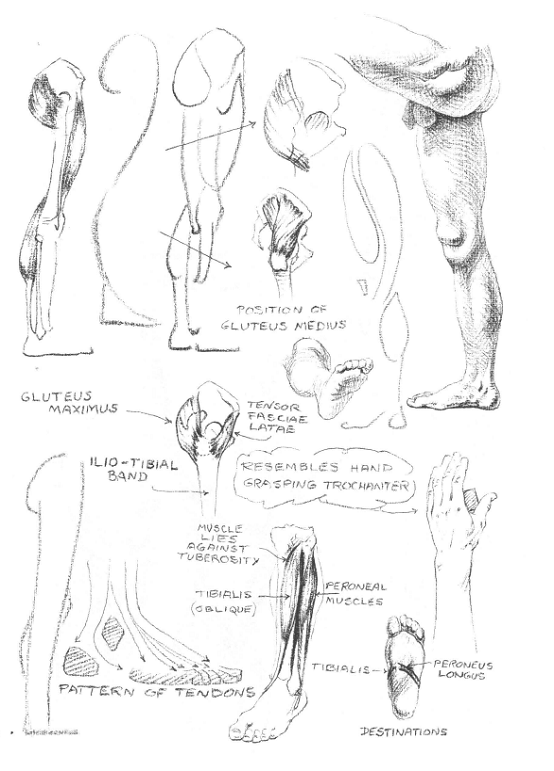 POSITION OF
GLUTEUS MEDIUS
GLUTEUS
MAXIMUS
TENSOR
FASCIAE
LATAE
ILIO-TIBIAL
BAND
RESEMBLES HAND
GRASPING TROCHANTER
MUSCLE
LIES
AGAINST
TUBEROSITY
TIBIALIS
(OBLIQUE)
PERONEAL
MUSCLES
PATTERN OF TENDONS
TIBIALIS
PERONEUS
LONGUS
DESTINATIONS